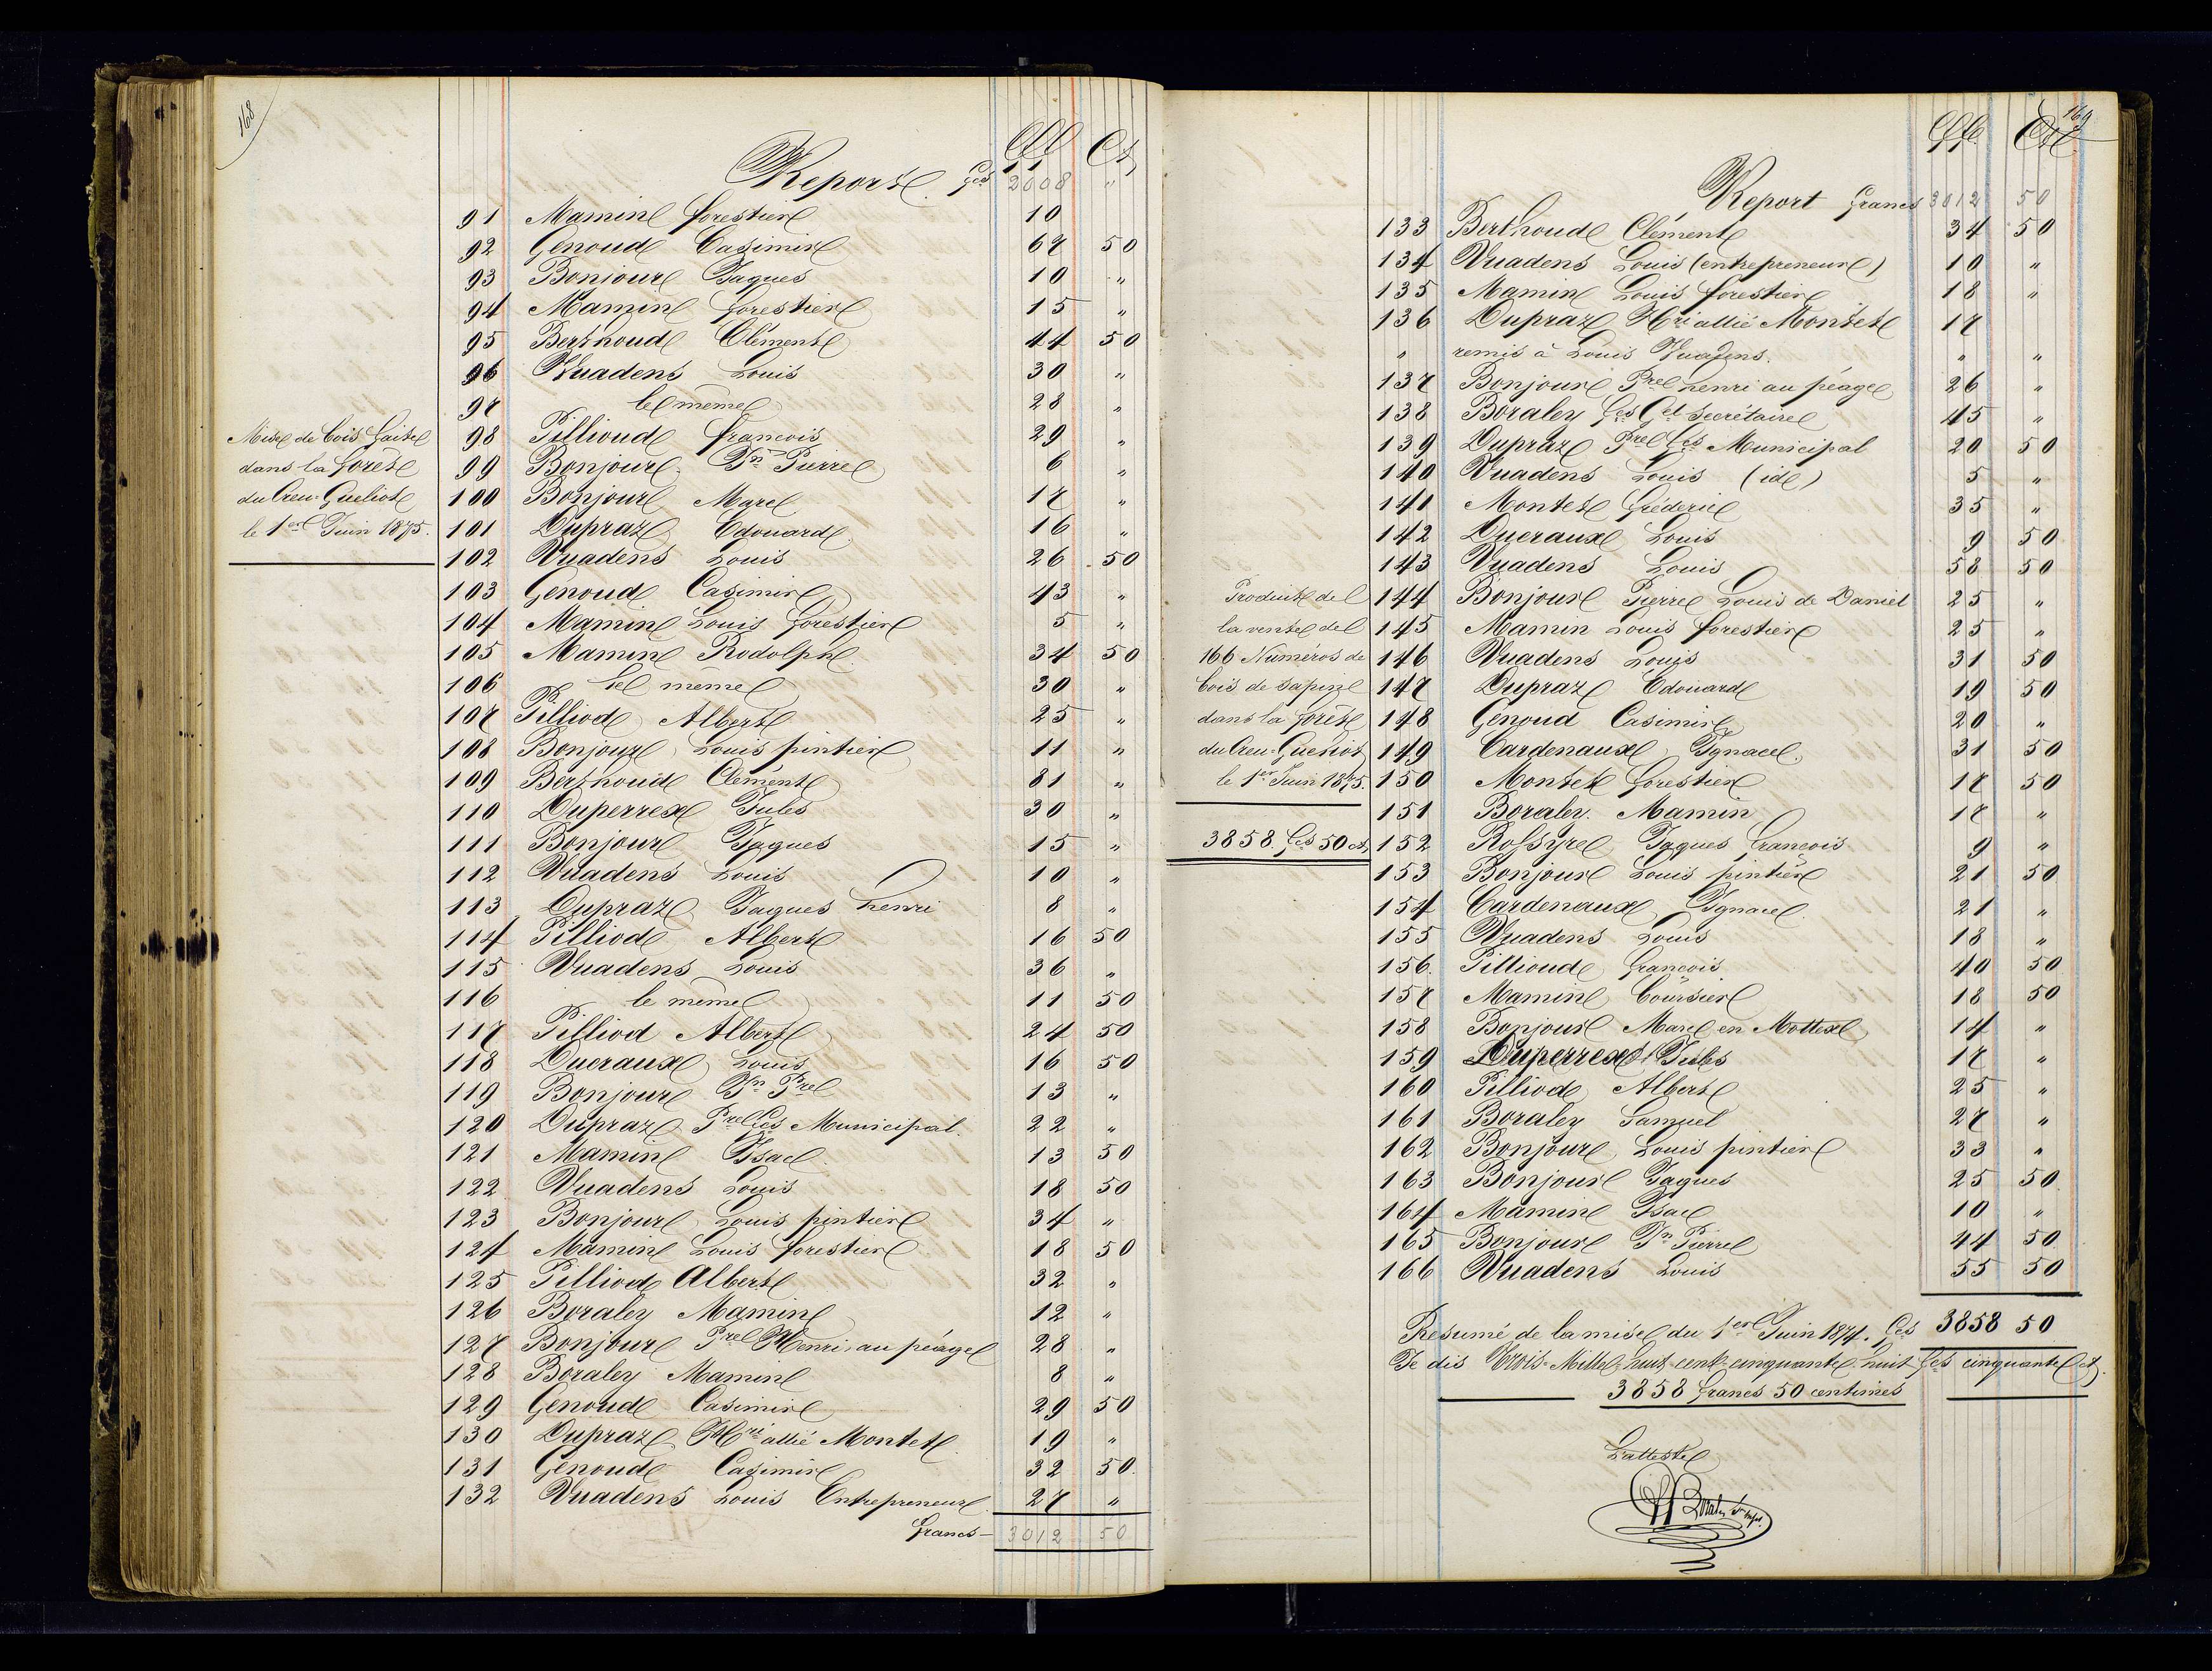 168
Report. fcs 2008 "
91 Mamin forestier 10
92 Genoud Casimir 67 50
93 Bonjour Jaques 10 "
94 Mamin forestier 15 "
95 Berthoud Clément 44 50
96 Vuadens Louis 30 "
97 le meme 28 "
Mise de bois faite 98 Pillioud francois 29 "
dans la forêt 99 Bonjour Jn Pierre 6 "
du Creu-Gueliot 100 Bonjour Marc 17 "
le 1er Juin 1875. 101 Dupraz Edouard 16 "
102 Vuadens Louis 26 50
103 Genoud Casimir 43 "
104 Mamin Louis forestier 5 "
105 Mamin Rodolph 34 50
106 le meme 30 "
107 Pilliod Albert 25 "
108 Bonjour Louis pintier 11 "
109 Berthoud Clément 81 "
110 Duperrex Jules 30 "
111 Bonjour Jaques 15 "
112 Vuadens Louis 10 "
113 Dupraz Jaques henri 8 "
114 Pilliod Albert 16 50
115 Vuadens Louis 36 "
116 le meme 11 50
117 Pilliod Albert 24 50
118 Ducraux Louis 16 50
119 Bonjour Jn Pre 13 "
120 Dupraz Pre fcs Municipal. 22 "
121 Mamin Isac 13 50
122 Vuadens Louis 18 50
123 Bonjour Louis pintier 34 "
124 Mamin Louis forestier 18 50
125 Pilliod Albert 32 "
126 Boraley Mamin 12 "
127 Bonjour Pre Henri au péage 28 "
128 Boraley Mamin 8 "
129 Genoud Casimir 29 50
130 Dupraz Hri allié Montet 19 "
131 Genoud Casimir 32 50
132 Vuadens Louis Entrepreneur 27 "
francs 3012 50
169
Report francs 3012 50
133 Berthoud Clément 34 50
134 Vuadens Louis (entrepreneur) 10 "
135 Mamin Louis forestier 18 "
136 Dupraz Hri allié Montet 17
" remis à Louis Vuadens. " "
137 Bonjour Pre henri au péage 26 "
138 Boraley fcs Gel secrétaire 45 "
139 Dupraz Pre fcs Municipal 20 50
140 Vuadens Louis (id) 5 "
141 Montet fréderic 35 "
142 Ducraux Louis 9 50
143 Vuadens Louis 58 50
Produit de 144 Bonjour Pierre Louis de Daniel 25 "
la vente de 145 Mamin Louis forestier 25 "
166 Numéros de 146 Vuadens Louis 31 50
bois de sapin 147 Dupraz Edouard 19 50
dans la forêt 148 Genoud Casimir 20 "
du Creu-Gueliot 149 Cardenaux Ignace. 31 50
le 1er Juin 1875. 150 Montet forestier 17 50
151 Boraley. Mamin 17 "
3858 fcs 50 ct 152 Rossyre Jaques francois 9 "
153 Bonjour Louis pintier 21 50
154 Cardenaux Ignace. 21 "
155 Vuadens Louis 18 "
156. Pillioud francois 40 50
157 Mamin Coursier 18 50
158 Bonjour Marc en Mottex 14 "
159 Duperrex Jules 17 "
160 Pilliod Albert 25 "
161 Boraley Samuel 27 "
162 Bonjour Louis pintier 33 "
163 Bonjour Jaques 25 50
164 Mamin Isac 10 "
165 Bonjour Jn Pierre 44 50
166 Vuadens Louis 55 50
Resumé de la mise du 1er Juin 1874. fcs 3858 50
Je dis Trois-Mille-huit-cent-cinquante-huit fcs cinquante ct.
3858 francs 50 centimes
L'atteste